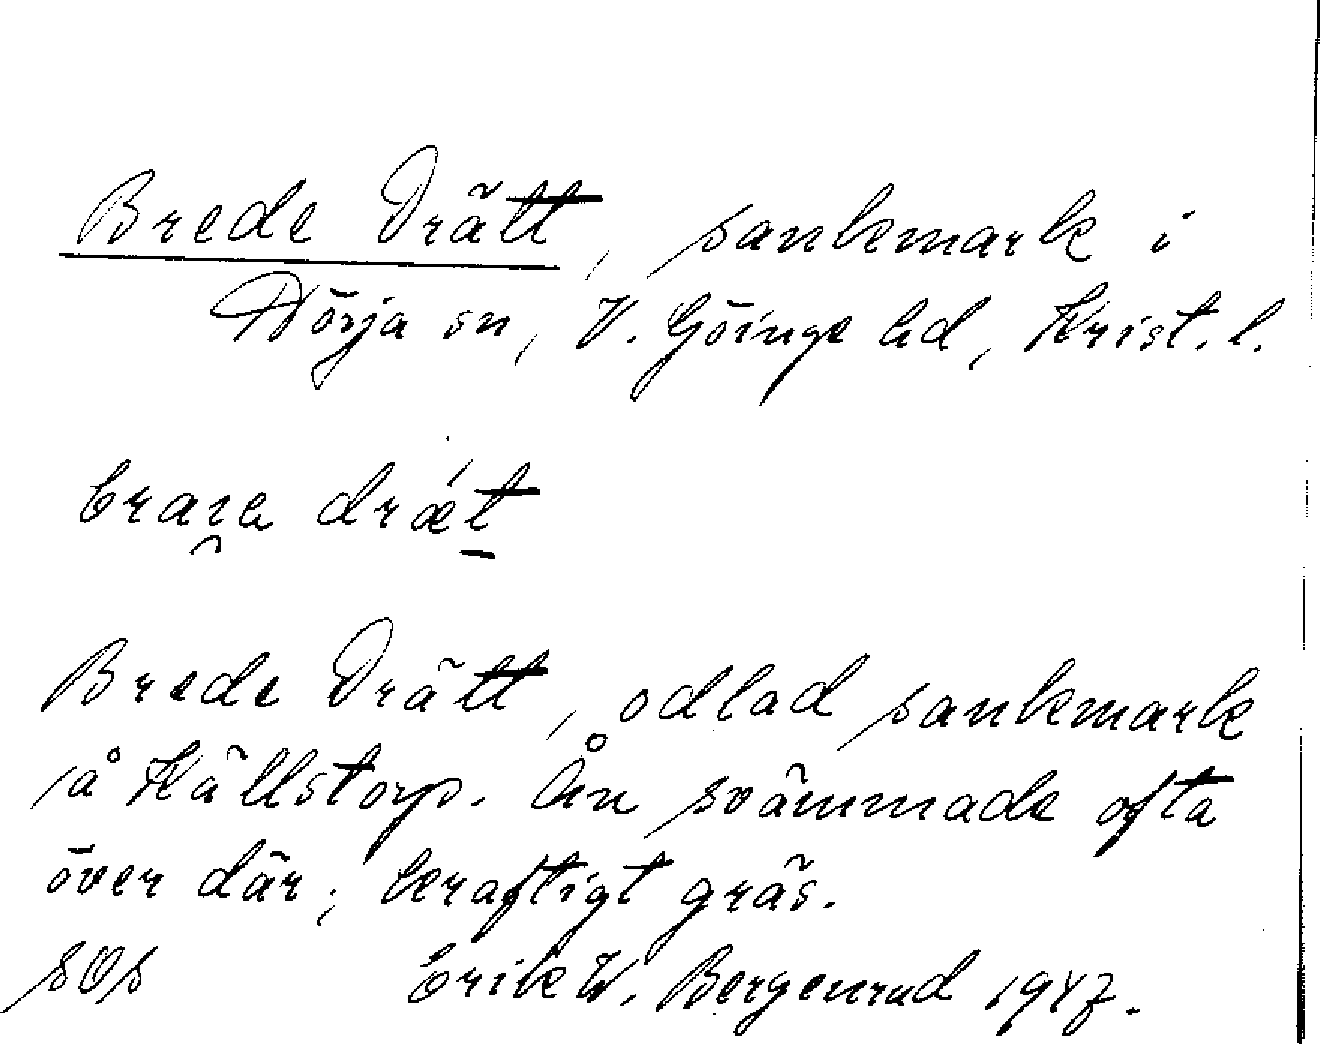 Brede Drätt, sankmark i
Nörja sn, V. Göinge hd, Krist. l.
drǽt
Brede Drätt, odlad sankmark
på Källstorp. Ån svämmade ofta
över där; kraftigt gräs.
SOS Erik W. Bergenrud 1947.